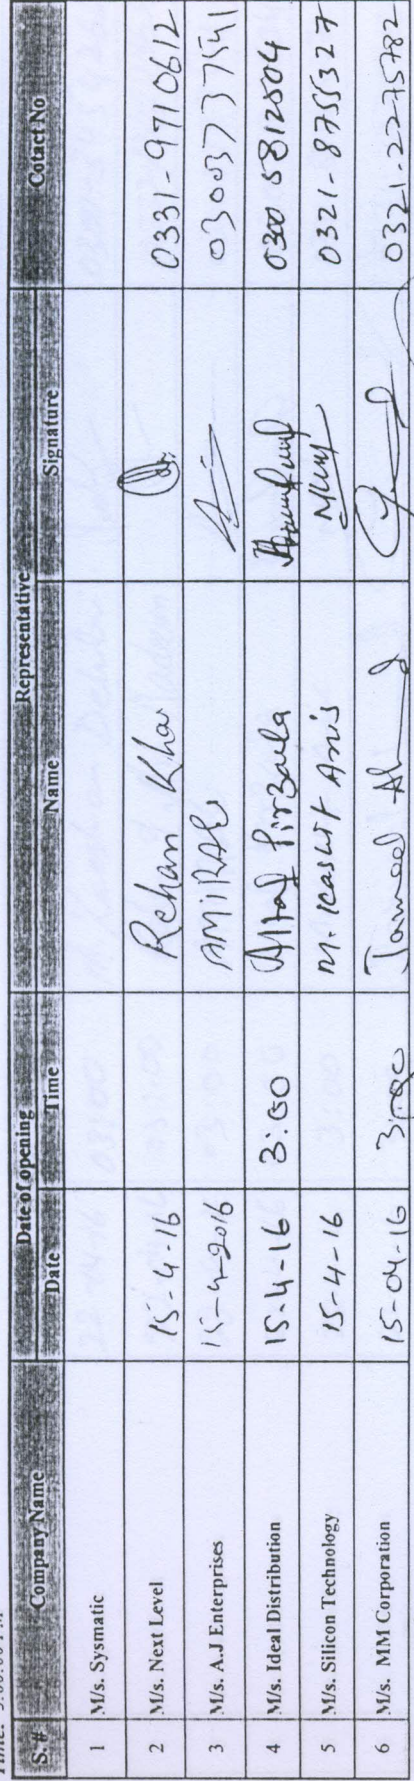 Time: 3:00:00 PM
S. # Company Name Date of opening Representative Cotact No
Date Time Name Signature
1 M/s. Sysmatic
2 M/s. Next Level 15-4-16 Rehan Khan 0331-9710612
3 M/s. A.J Enterprises 15-4-2016 AMIRALI 03003737541
4 M/s. Ideal Distribution 15-4-16 3:00 Altaf Pirzada 0300 5812504
5 M/s. Silicon Technology 15-4-16 M. Kashif Anis 0321-8755327
6 M/s. MM Corporation 15-04-16 3:00 Jameel 0321-2275782